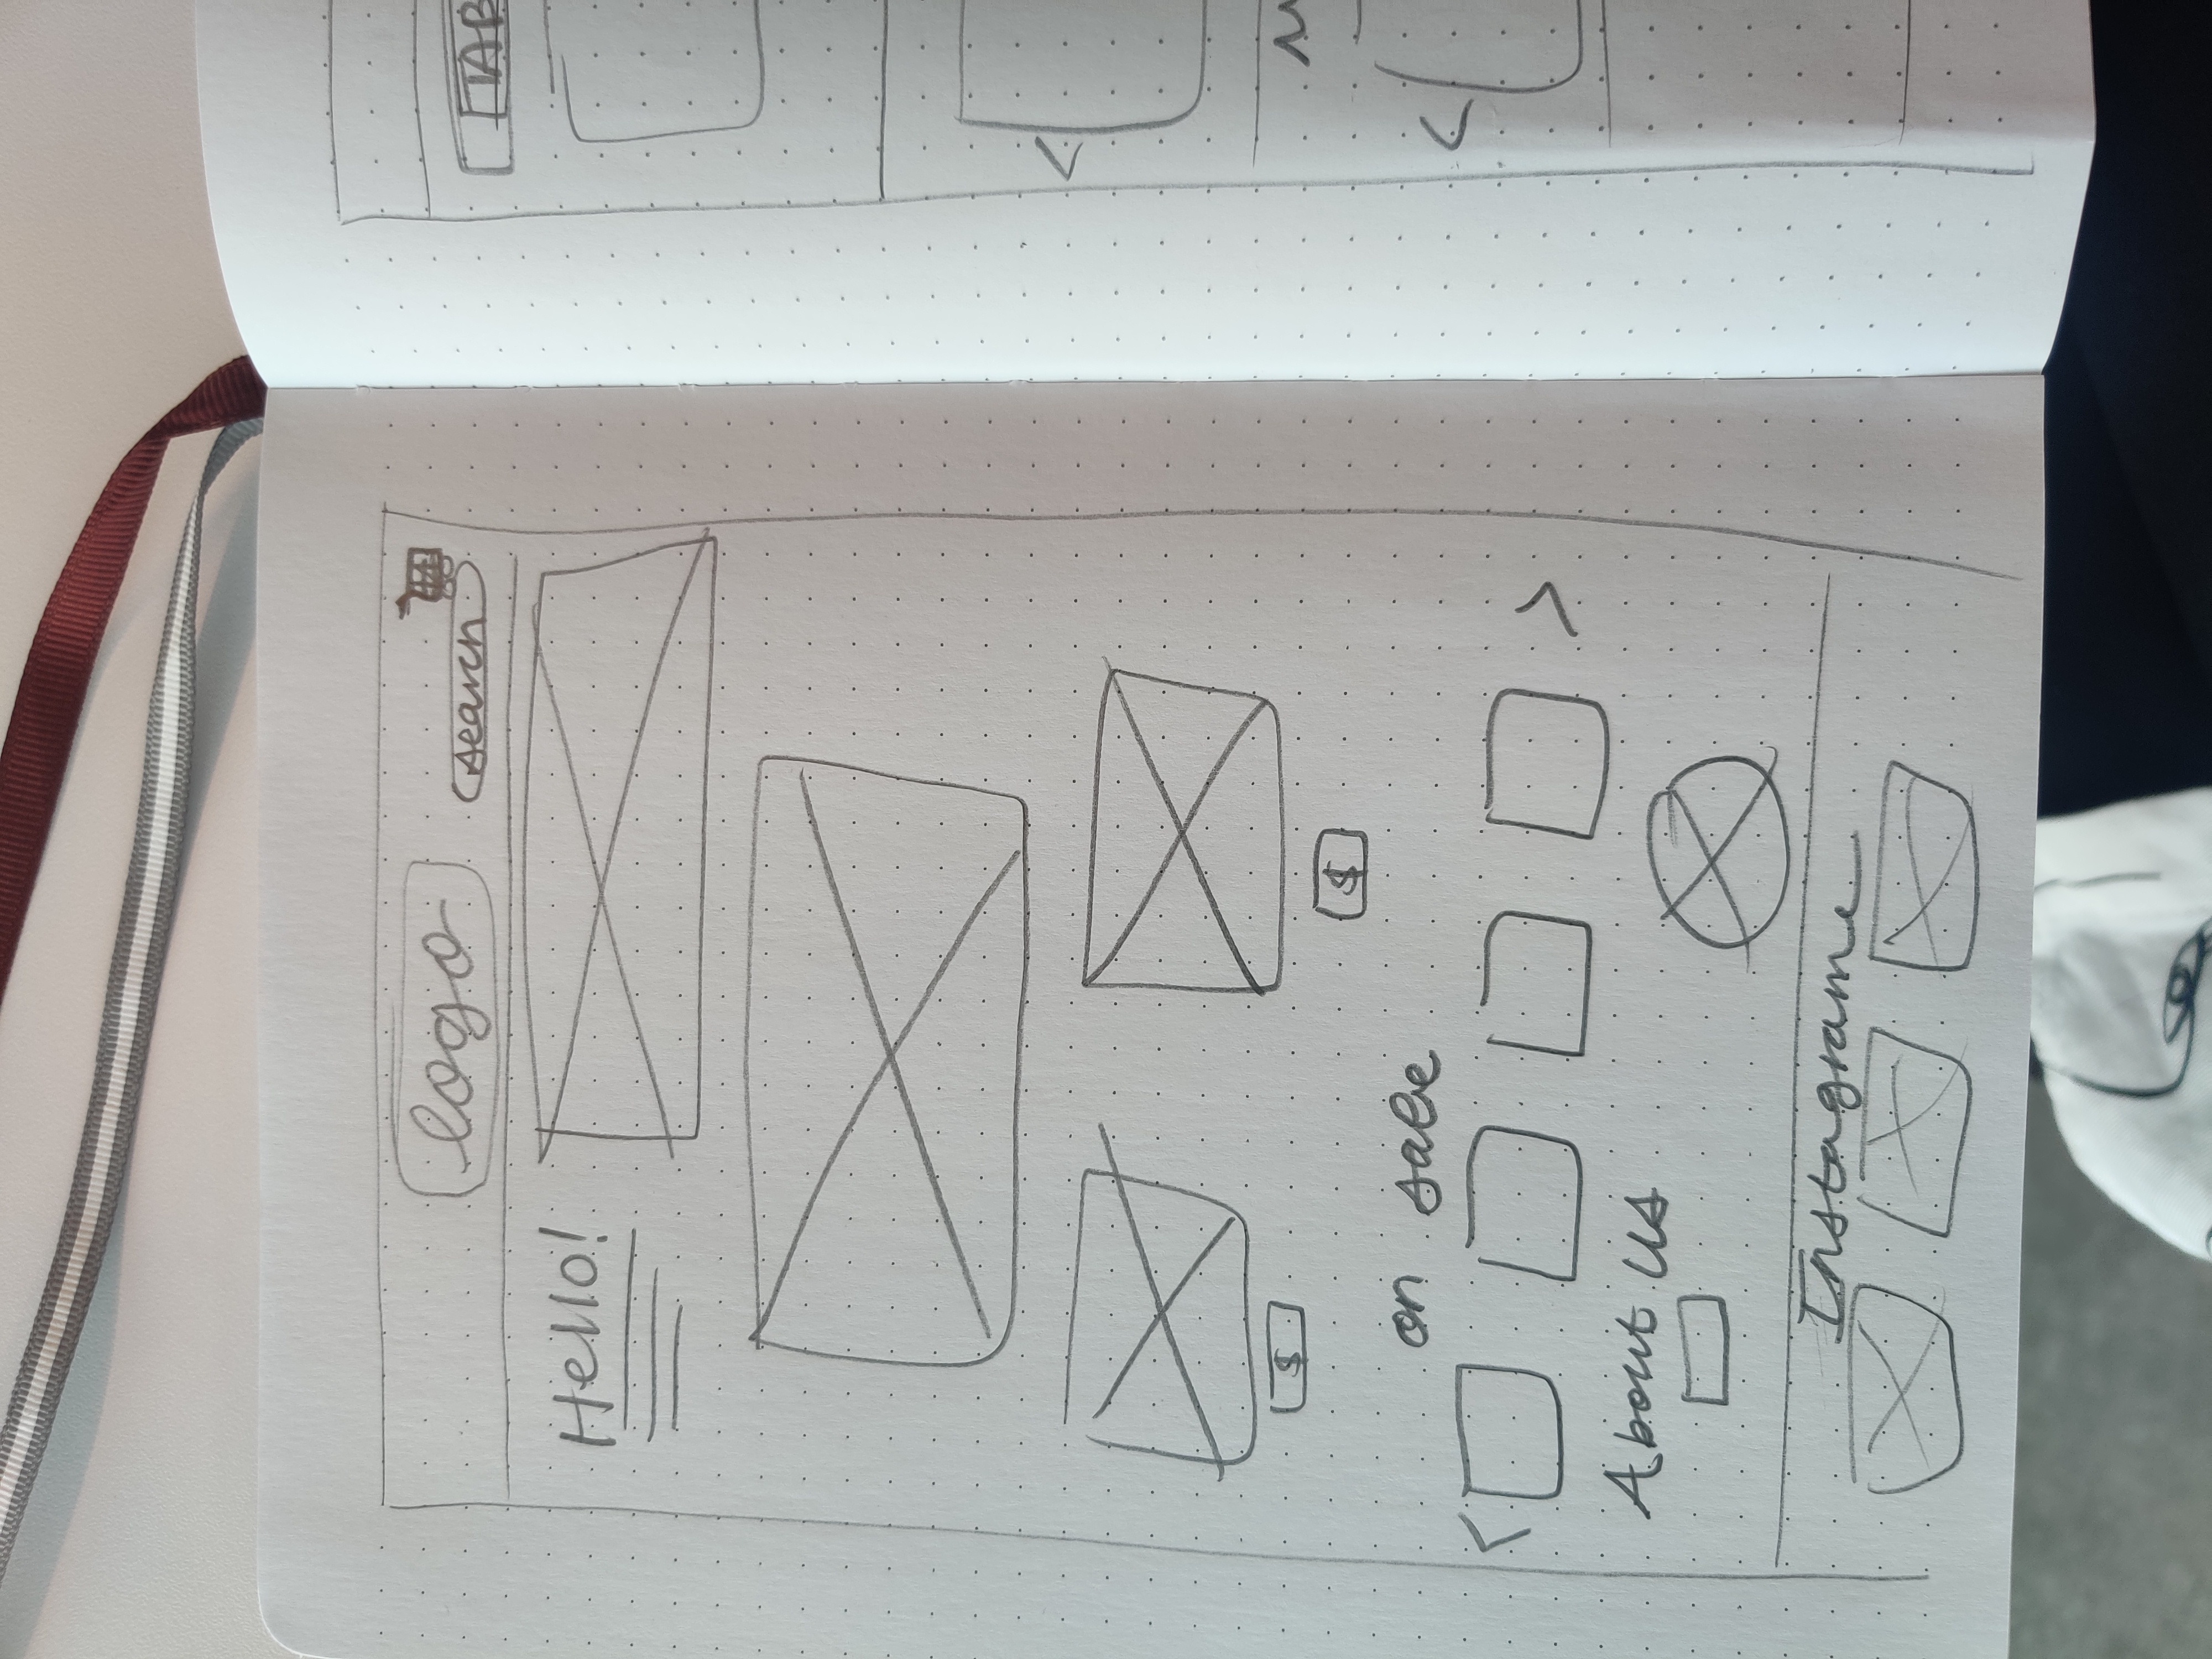 logo
search
Hello!
$
$
on sale
< >
About us
Instagrame
TAB
<
<